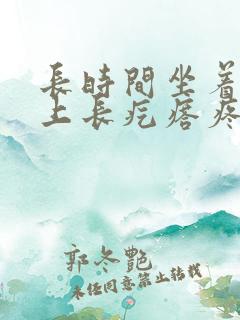 長時間坐着
上長疙瘩疼
郭冬艷
未经同意禁止转载